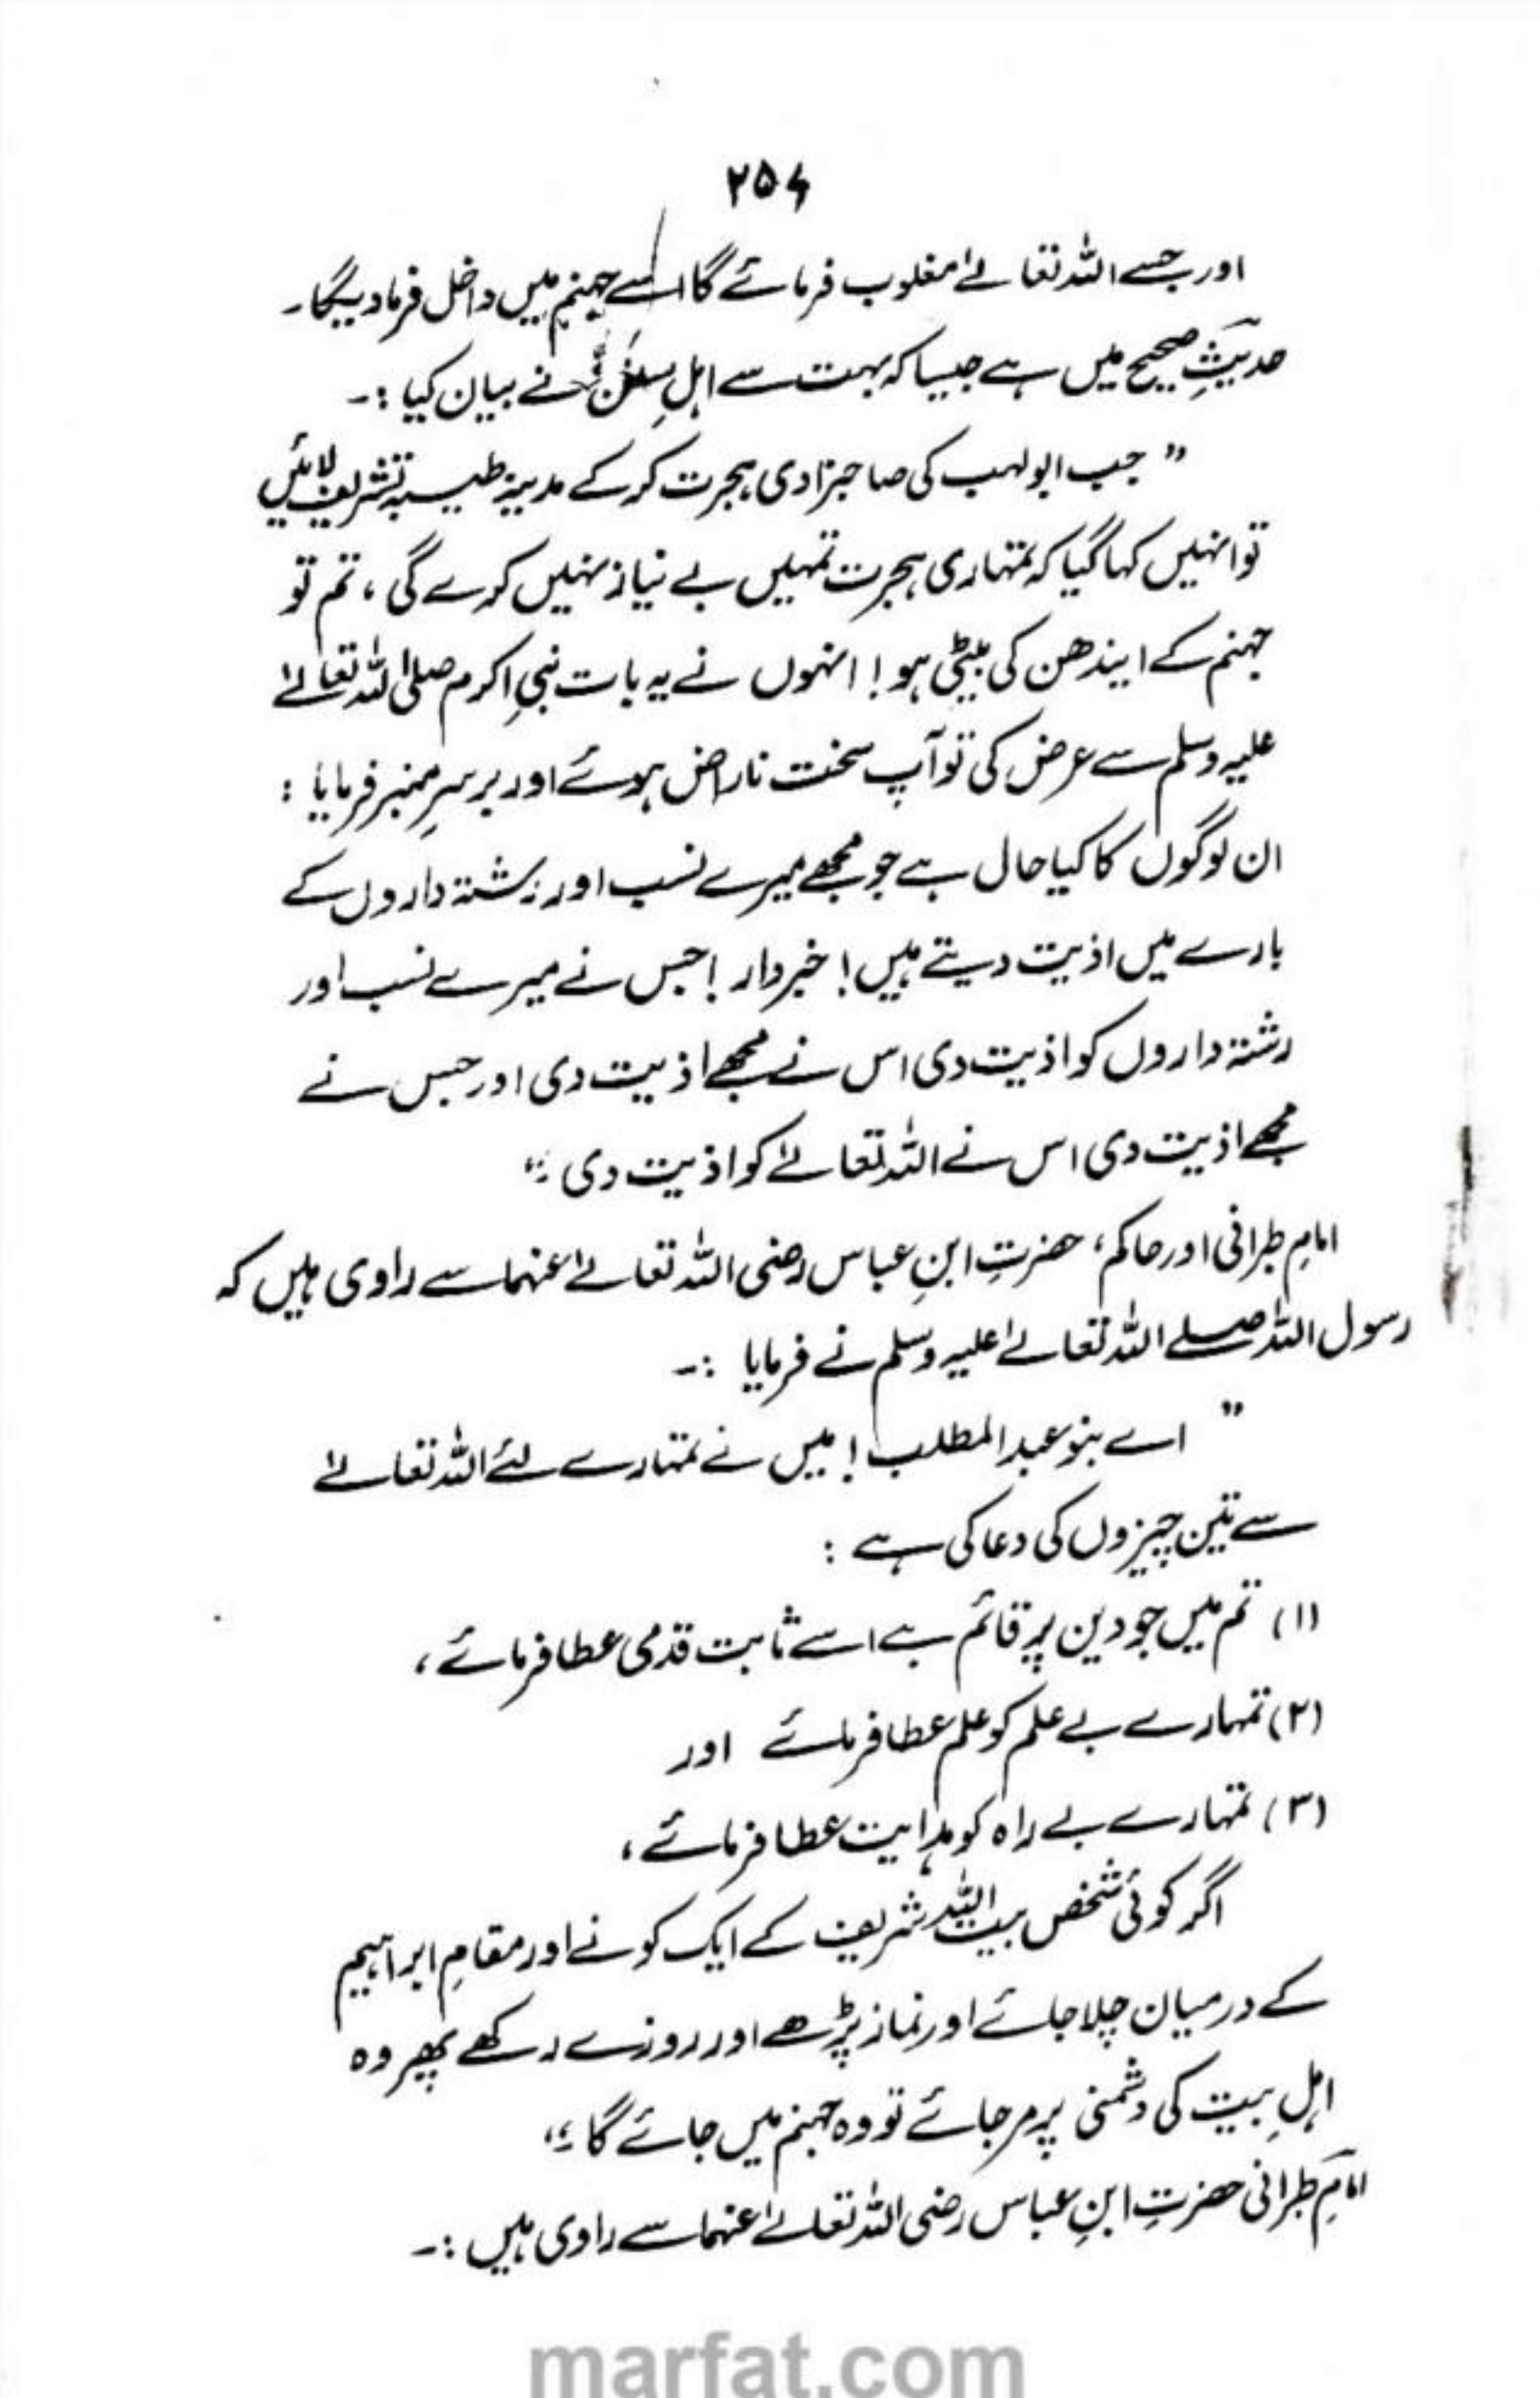 ۲۵۶
اور جسے اللہ تعالےٰ مغلوب فرمائے گا اسے جہنم میں داخل فرما دیگا۔
حدیثِ صحیح میں ہے جیسا کہ بہت سے اہلِ سنن نے بیان کیا :۔
” جب ابولہب کی صاحبزادی ہجرت کر کے مدینہ طیبہ تشریف لائیں
تو انہیں کہا گیا کہ تمہاری ہجرت تمہیں بے نیاز نہیں کرے گی ، تم تو
جہنم کے ایندھن کی بیٹی ہو ! انہوں نے یہ بات نبیِ اکرم صلی اللہ تعالےٰ
علیہ وسلم سے عرض کی تو آپ سخت ناراض ہوئے اور برسرِ منبر فرمایا :
ان لوگوں کا کیا حال ہے جو مجھے میرے نسب اور رشتہ داروں کے
بارے میں اذیت دیتے ہیں ! خبردار ! جس نے میرے نسب اور
رشتہ داروں کو اذیت دی اس نے مجھے اذیت دی اور جس نے
مجھے اذیت دی اس نے اللہ تعالےٰ کو اذیت دی ؛“
امام طبرانی اور حاکم ، حضرتِ ابنِ عباس رضی اللہ تعالےٰ عنہما سے راوی ہیں کہ
رسول اللہ صلے اللہ تعالےٰ علیہ وسلم نے فرمایا :۔
” اے بنو عبد المطلب ! میں نے تمہارے لئے اللہ تعالےٰ
سے تین چیزوں کی دعا کی ہے :
(۱) تم میں جو دین پر قائم ہے اسے ثابت قدمی عطا فرمائے ،
(۲) تمہارے بے علم کو علم عطا فرمائے اور
(۳) تمہارے بے راہ کو ہدایت عطا فرمائے ،
اگر کوئی شخص بیت اللہ شریف کے ایک کونے اور مقامِ ابراہیم
کے درمیان چلا جائے اور نماز پڑھے اور روزے رکھے پھر وہ
اہلِ بیت کی دشمنی پر مر جائے تو وہ جہنم میں جائے گا ؛“
امام طبرانی حضرتِ ابنِ عباس رضی اللہ تعالےٰ عنہما سے راوی ہیں :۔
marfat.com